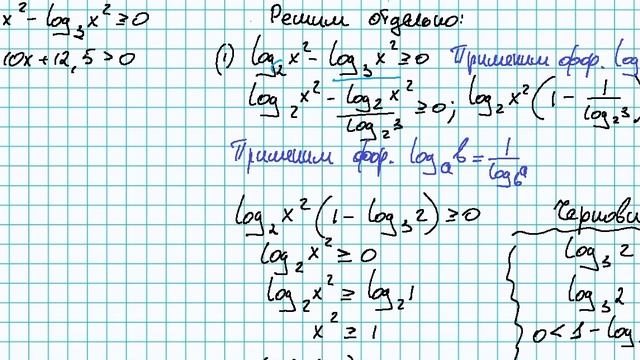 x² - log₃ x² ≥ 0
10x + 12,5 > 0
Решим отдельно:
(1) log₂ x² - log₃ x² ≥ 0 Применим фор. log
log₂ x² - log₂ x² / log₂ 3 ≥ 0; log₂ x² (1 - 1 / log₂ 3)
Применим фор. logₐ b = 1 / log_b a
log₂ x² (1 - log₃ 2) ≥ 0
log₂ x² ≥ 0
log₂ x² ≥ log₂ 1
x² ≥ 1
Чернови
log₃ 2
log₃ 2
0 < 1 - log